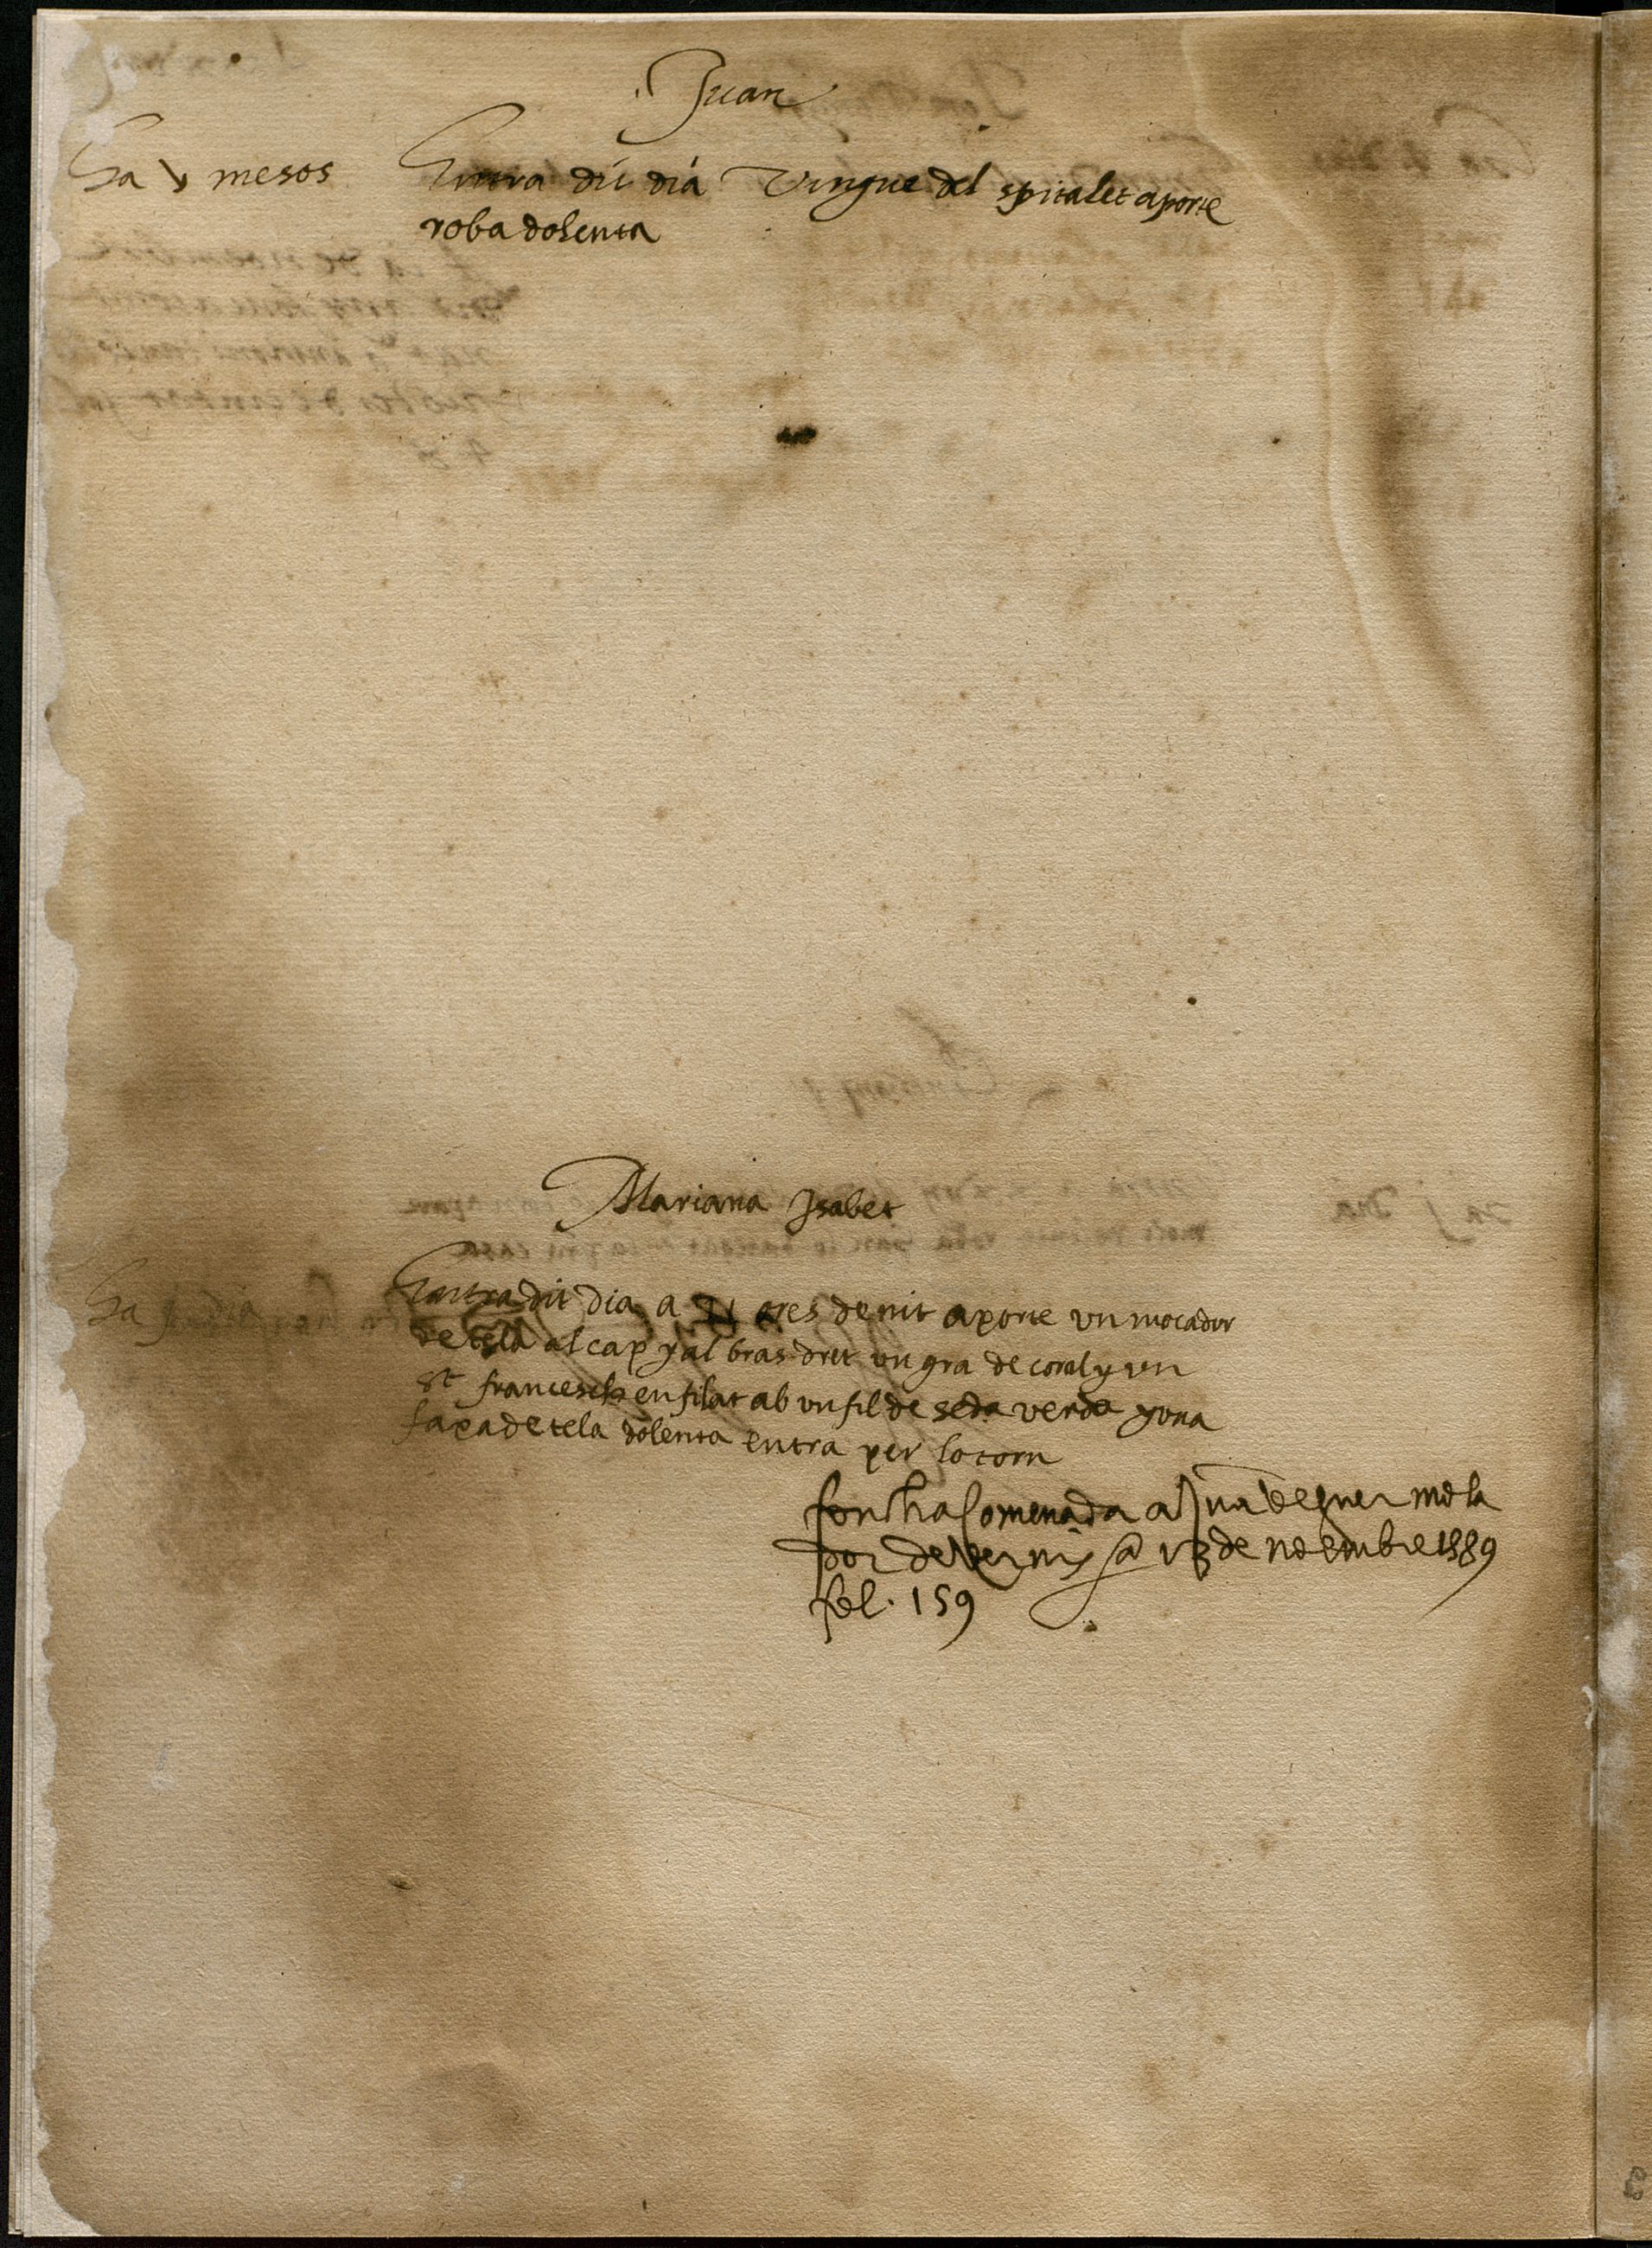 Juan
Ha v mesos Entra dit dia Vingue del spitalet aporte
roba dolenta
Mariana Isabet
Ha j dia Entra dit dia a 11 ores de nit aporte un mocador
de tela al cap y al bras dret un gra de coral y un
st francesch enfilat ab un fil de seda verda y una
faxa de tela dolenta entra per lo torn
fonch a Comenada a
de a 13 de noembre 1589
fol. 159